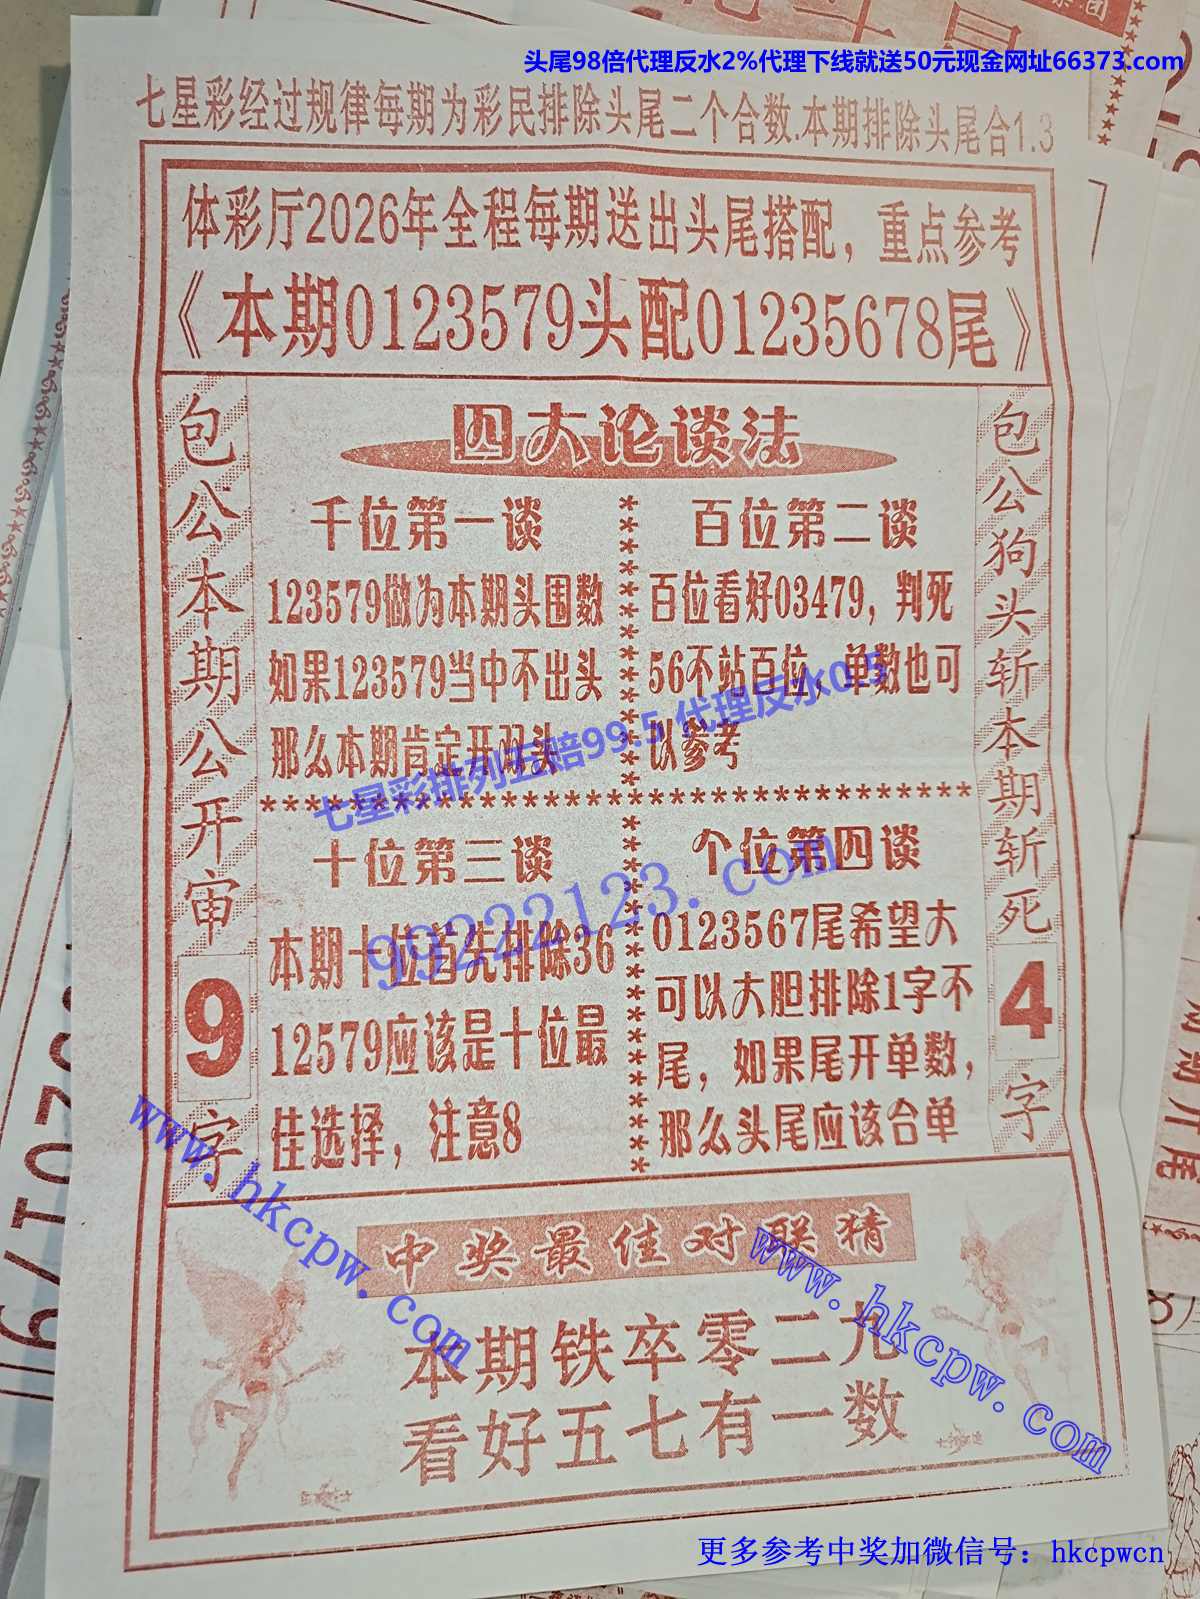 头尾98倍代理反水2%代理下线就送50元现金网址66373.com
七星彩经过规律每期为彩民排除头尾二个合数.本期排除头尾合1.3
体彩厅2026年全程每期送出头尾搭配，重点参考
《本期0123579头配01235678尾》
包公本期公开审9字
四大论谈法
千位第一谈
123579做为本期头围数
如果123579当中不出头
那么本期肯定开双头
百位第二谈
百位看好03479，判死
56不站百位，单数也可
以参考
七星彩排列五赔99.5 代理反水0.5
99222123.com
十位第三谈
本期十位首先排除36
12579应该是十位最
佳选择，注意8
个位第四谈
0123567尾希望大
可以大胆排除1字不
尾，如果尾开单数，
那么头尾应该合单
包公狗头斩本期斩死4字
中奖最佳对联猜
本期铁卒零二九
看好五七有一数
www.hkcpw.com
www.hkcpw.com
更多参考中奖加微信号：hkcpwcn